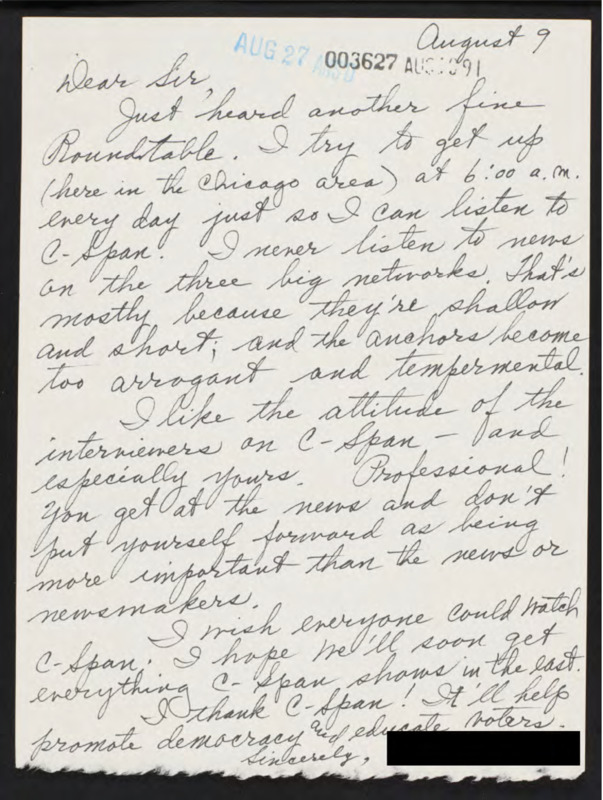 August 9
AUG 27 003627 AUG 91
Dear Sir,
Just heard another fine
Roundtable. I try to get up
(here in the Chicago area) at 6:00 a.m.
every day just so I can listen to
C-Span. I never listen to news
on the three big networks. That's
mostly because they're shallow
and short; and the anchors become
too arrogant and tempermental.
I like the attitude of the
interviewers on C-Span – and
especially yours. Professional!
You get at the news and don't
put yourself forward as being
more important than the news or
newsmakers.
I wish everyone could watch
C-Span. I hope we'll soon get
everything C-Span shows in the east.
I thank C-Span! It'll help
promote democracy and educate voters.
Sincerely,